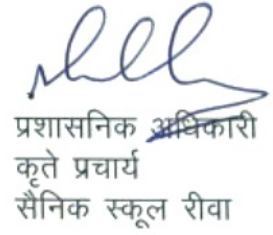 प्रशासनिक अधिकारी
कृते प्रचार्य
सैनिक स्कूल रीवा